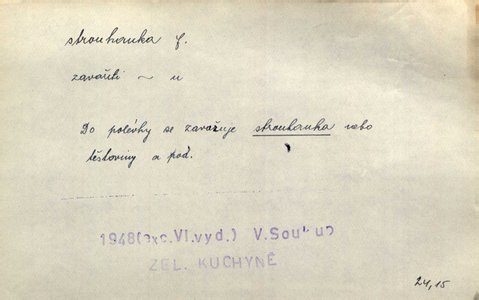 strouhanka f.
zavařiti ~ u
Do polévky se zavařuje strouhanka nebo
těstoviny a pod.
1948(exc.VI.vyd.) V.Soukup
ZEL. KUCHYNĚ
24,15